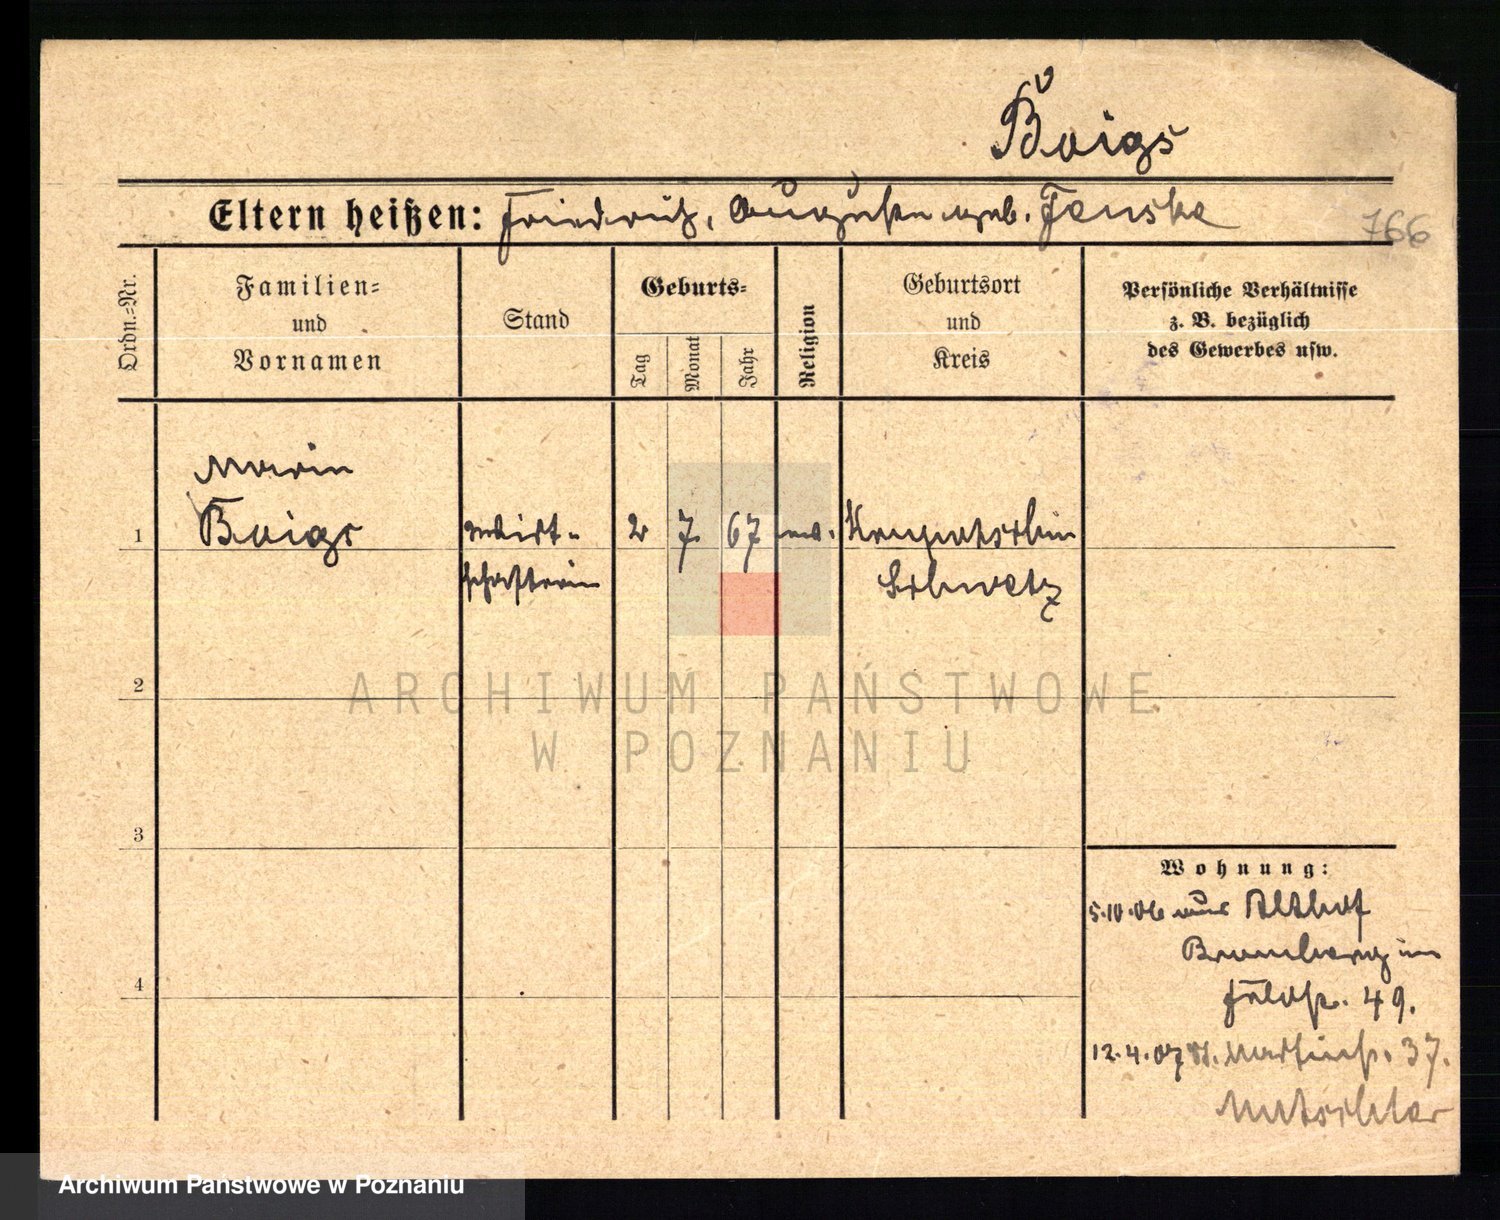 Boigs
Eltern heißen: Friedrich, Auguste geb. Fenske
766
Ordn.-Nr.
Familien-
und
Vornamen
Stand
Geburts-
Tag
Monat
Jahr
Religion
Geburtsort
und
Kreis
Persönliche Verhältnisse
z. B. bezüglich
des Gewerbes usw.
Maria
1 Boigs Wirt- 2 7. 67 ev.
schafterin Schwetz
2
3
4
Wohnung:
5.10.06 aus Althof
Bromberg in
Feldstr. 49.
12.4.07 St. Martinstr. 37.
ARCHIWUM PAŃSTWOWE
W POZNANIU
Archiwum Państwowe w Poznaniu